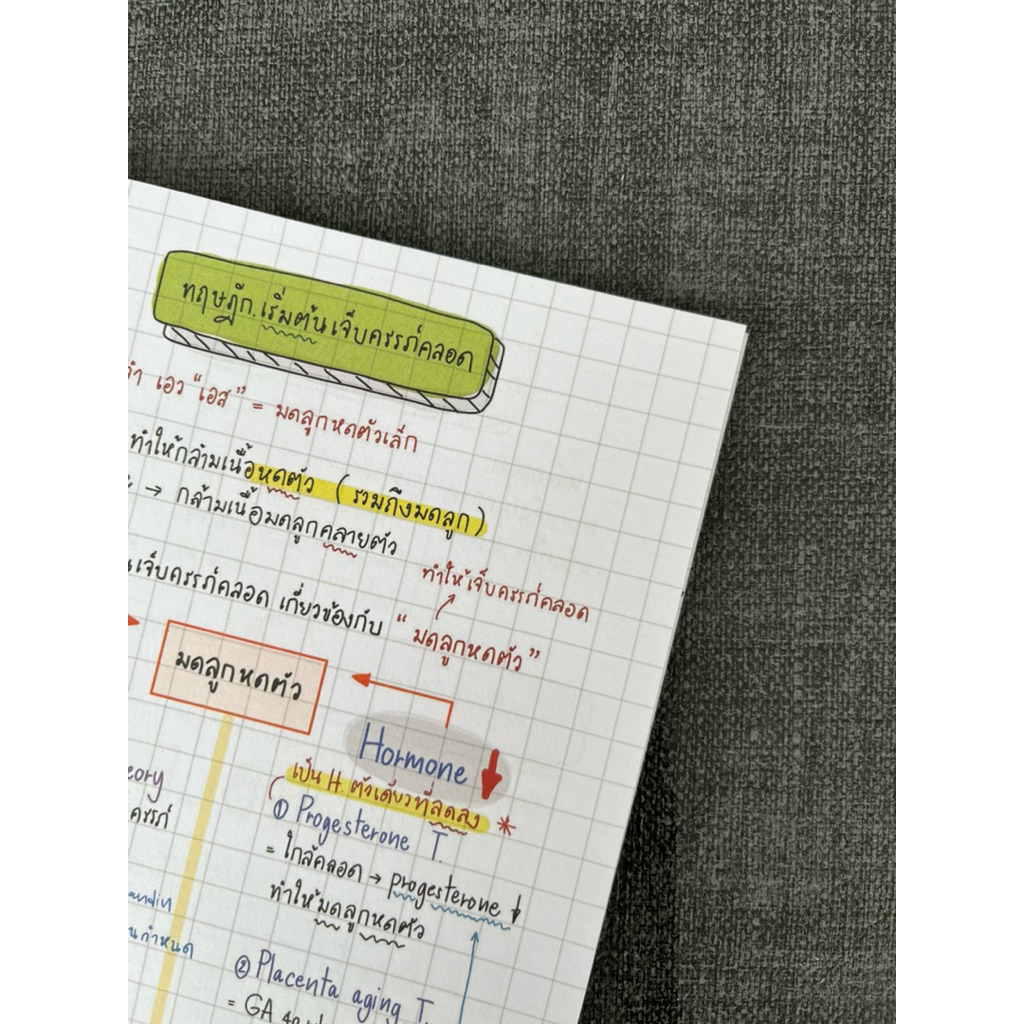 ทฤษฎีก.เริ่มต้นเจ็บครรภ์คลอด
จำ เอว "เอส" = มดลูกหดตัวเล็ก
ทำให้กล้ามเนื้อหดตัว (รวมถึงมดลูก)
→ กล้ามเนื้อมดลูกคลายตัว
ทำให้เจ็บครรภ์คลอด
เจ็บครรภ์คลอด เกี่ยวข้องกับ "มดลูกหดตัว"
มดลูกหดตัว
Hormone ↓
เป็น H. ตัวเดียวที่ลดลง *
① Progesterone T.
= ใกล้คลอด → progesterone ↓
ทำให้มดลูกหดตัว
② Placenta aging T.
= GA
eory
ครรภ์
andin
กำหนด